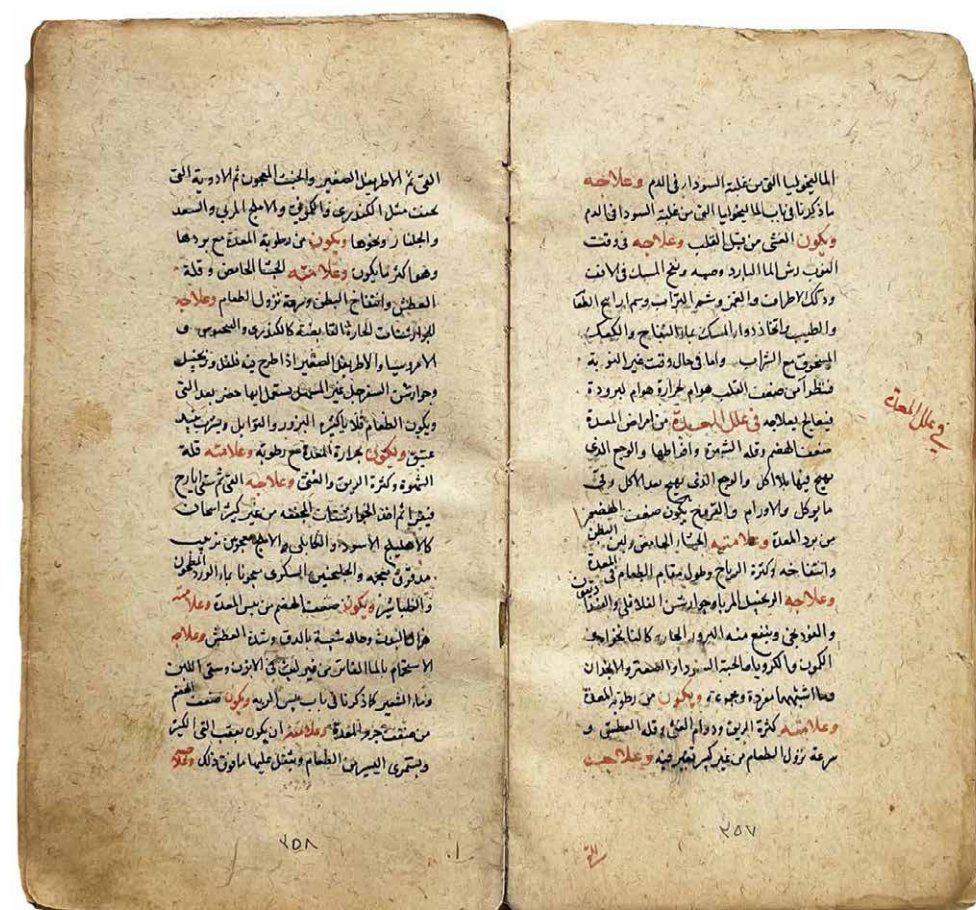 الماليخوليا التى من غلبة السودا فى الدم وعلاجه
ما ذكرنا فى باب الماليخوليا التى من غلبة السودا فى الدم
ويكون الغشى من قبل القلب وعلاجه فى وقت
النوب رش الما البارد وصبه ونفخ المسك فى الانف
ودلك الاطراف والغمز وشم الشراب وسم اراييح
والطيب واتخاذ دوا المسك بماء التفاح والكعك
المسحوق مع الشراب واما فى حال وقت غير النوبة
فينظر أمن ضعف القلب هوام لحرارة هوام لبرودة
فيعالج بعلاجه فى علل المعدة من امراض المعدة
ضعف الهضم وقله الشهوة وافراطها والوجع الذى
يهيج فيها بلا اكل والوجع الذى يهيج بعد الاكل وقئ
ما يوكل والاورام والقروح يكون ضعف الهضم
من برد المعدة وعلامته الجشاء الحامض ولين البطن
وانتفاخه وكثرة الرياح وطول مقام الطعام فى المعدة
وعلاجه الزنجبيل المربا وجوارشن الفلافلى
والفودنجى وينفع منه البزور الحاره كالنانخواه
الكمون والكرويا والحبة السودا والصعتر والانجدان
وما اشبهها مفردة ومجموعة ويكون من رطوبة المعدة
وعلامته كثرة الريق ودوام الغثى وقلة العطش و
سرعة نزول الطعام من غير كبير تغير فيه وعلاجه
فى علل المعدة
٢٥٧
القى ثم الاطريفل الصغير والخبث المعجون ثم الادوية التى
تجفف مثل الكندرى والكمونى والاملج المربى والسعد
والجلنار ونحوها ويكون من رطوبة المعدة مع بردها
وهو اكثر ما يكون وعلامته الجشا الحامض وقلة
العطش وانتفاخ البطن وسرعة نزول الطعام وعلاجه
الجوارشنات الحارة القابضة كالكندرى و
الامروسيا والاطريفل الصغير اذا طرح فيه فلفل وزنجبيل
وجوارشن السفرجل غير المسهل يستعمل ايها حضر بعد القى
ويكون الطعام قلايا كثيرة البزور والتوابل ويشرب نبيذ
عتيق ويكون لحرارة المعدة مع رطوبة وعلامته قلة
الشهوة وكثرة الريق والغثى وعلاجه القى ثم سقى ايارج
فيقرا ثم اخذ الجوارشنات المجففه من غير كبير اسخان
كالاهليلج الاسود والكابلى والاملج معجونين بزبيب
مدقوق بعجمه والجلنجبين السكرى معجونا بماء الورد المطحون
والطباشير ويكون ضعف الهضم من يبس المعدة وعلامته
هزال البدن وحاله شبيهة بالدق وشدة العطش وعلاجه
الاستحمام بالما الفاتر من غير لبث فى الابزن وسقى اللبن
وماء الشعير كما ذكرنا فى باب يبس الريه ويكون ضعف الهضم
من ضعف جرم المعدة وعلامته ان يكون بعقب القى الكثير
ويستمرى اليسير من الطعام ويثقل عليها ما فوق ذلك وعلاجه
٢٥٨